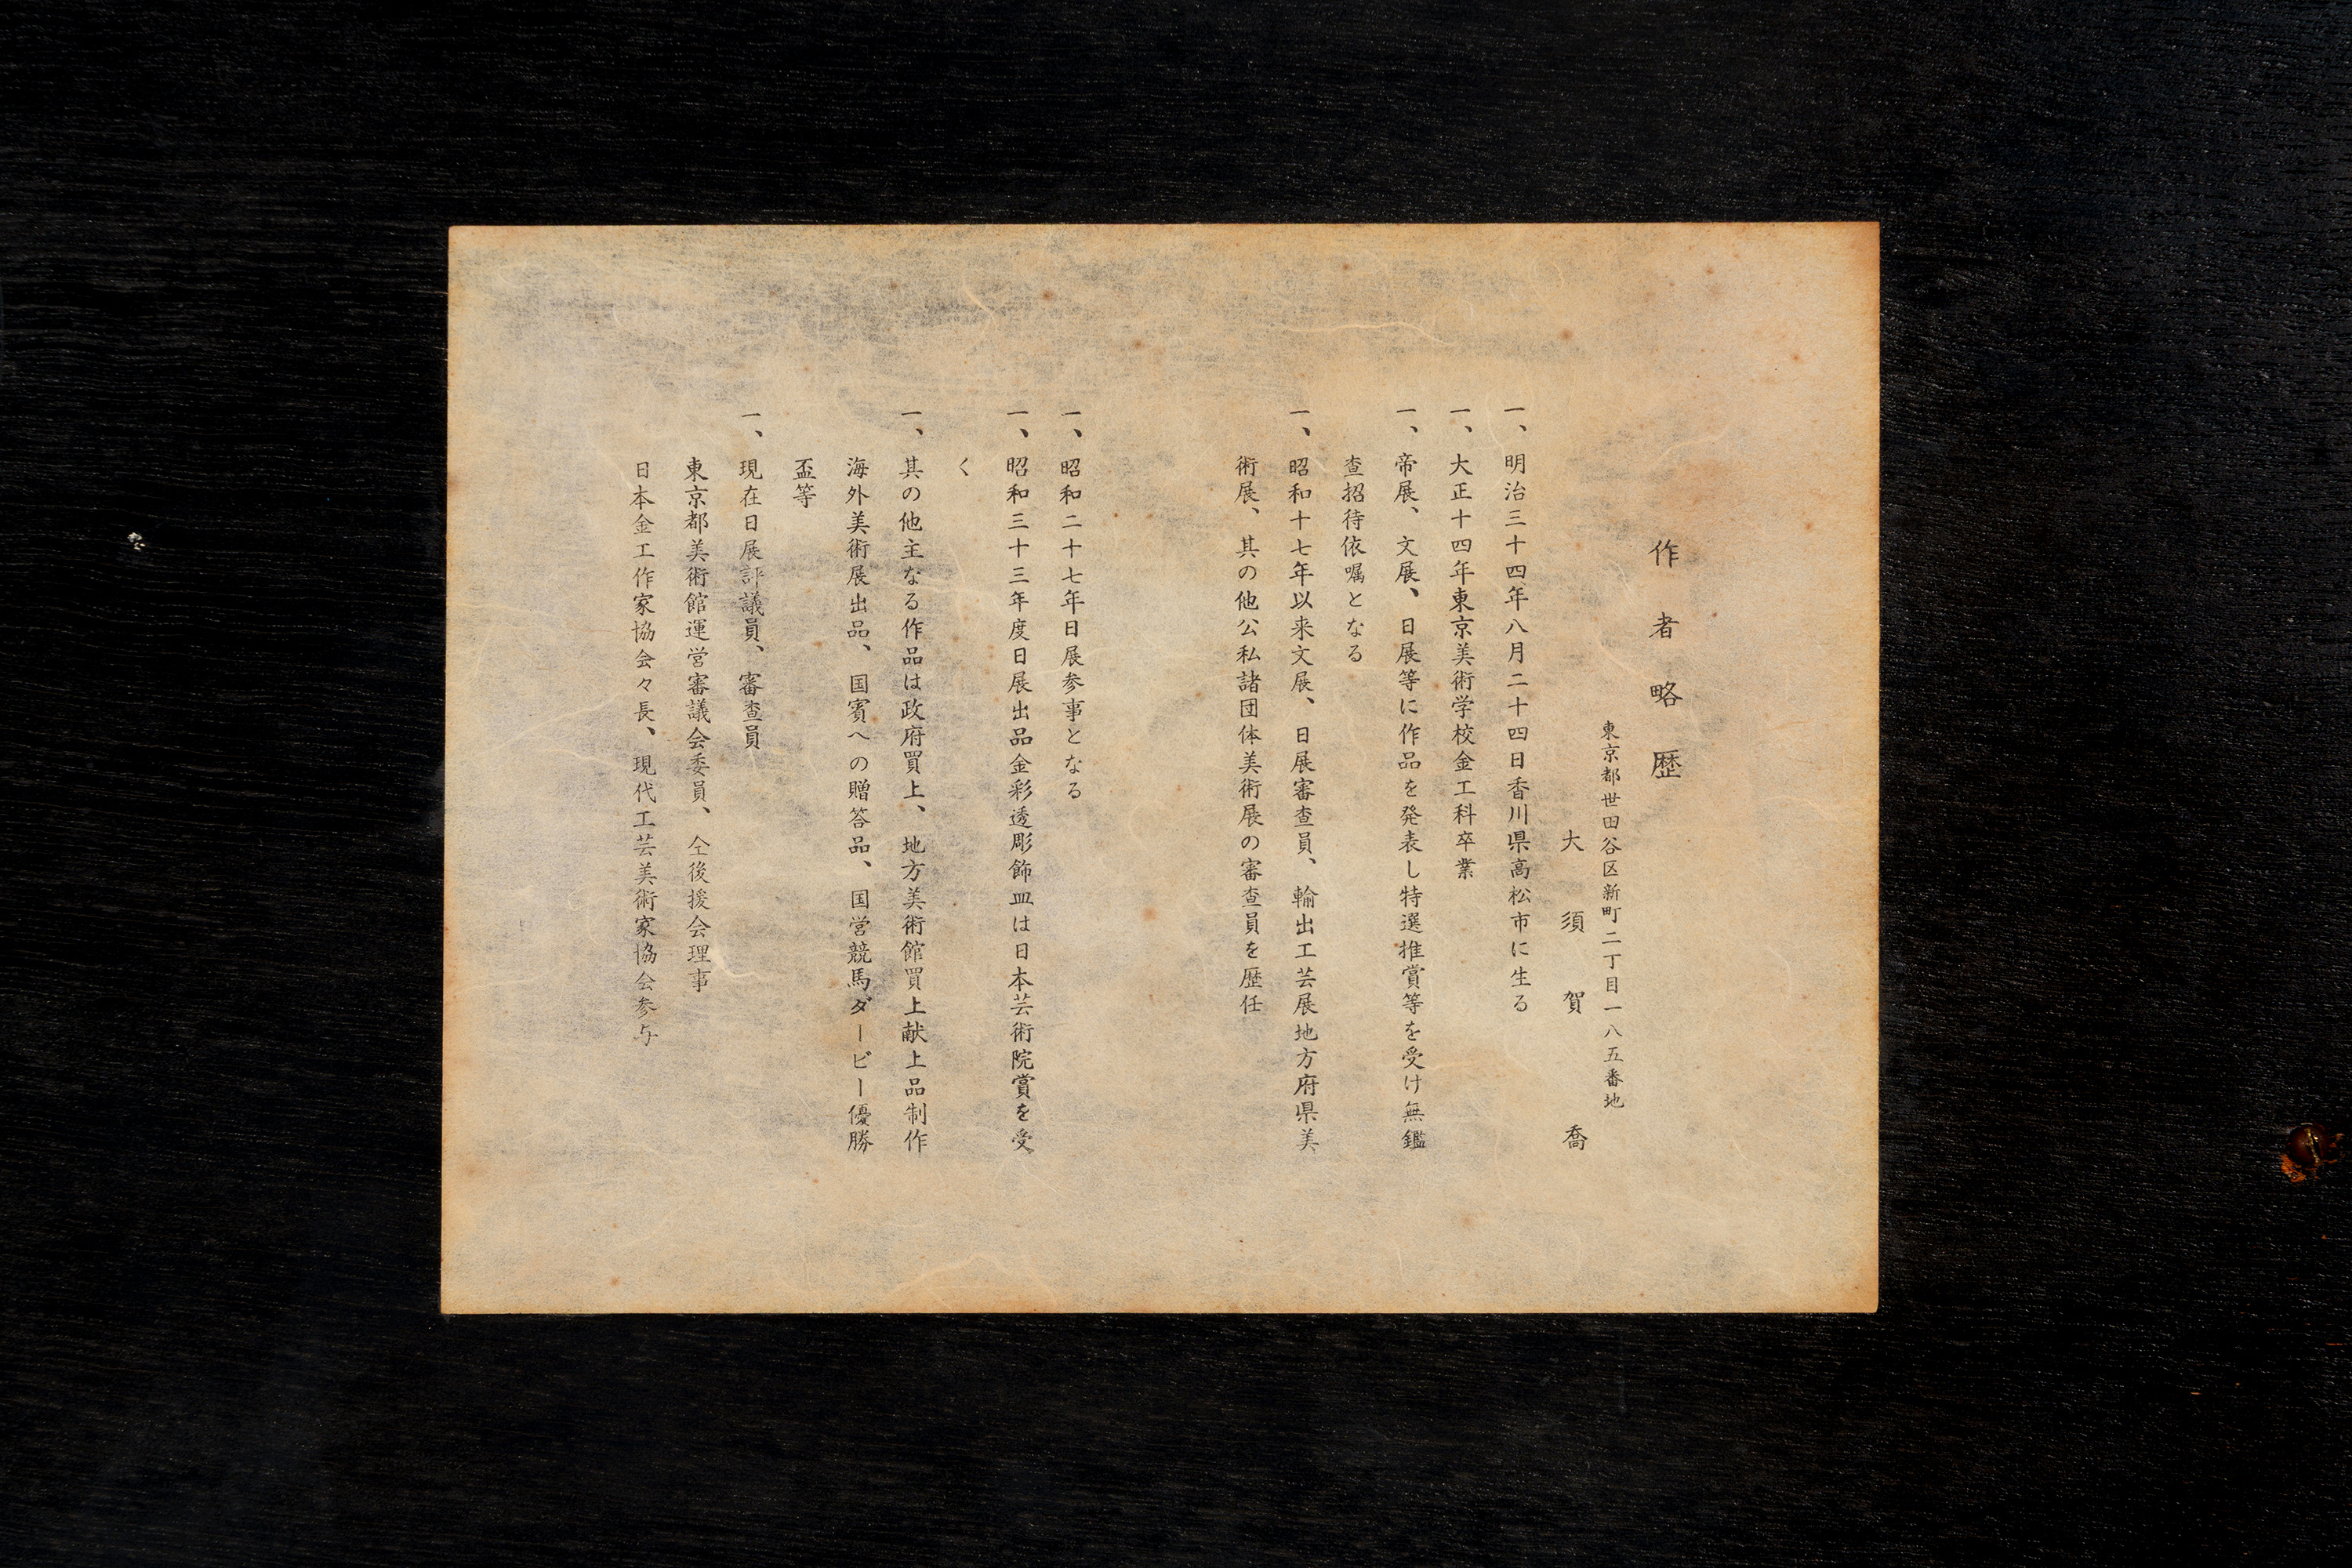 作者略歴
東京都世田谷区新町二丁目一八五番地
大須賀喬
一、明治三十四年八月二十四日香川県高松市に生る
一、大正十四年東京美術学校金工科卒業
一、帝展、文展、日展等に作品を発表し特選推賞等を受け無鑑
査招待依嘱となる
一、昭和十七年以来文展、日展審査員、輸出工芸展地方府県美
術展、其の他公私諸団体美術展の審査員を歴任
一、昭和二十七年日展参事となる
一、昭和三十三年度日展出品金彩透彫飾皿は日本芸術院賞を受
く
一、其の他主なる作品は政府買上、地方美術館買上献上品制作
海外美術展出品、国賓への贈答品、国営競馬ダービー優勝
盃等
一、現在日展評議員、審査員
東京都美術館運営審議会委員、仝後援会理事
日本金工作家協会々長、現代工芸美術家協会参与